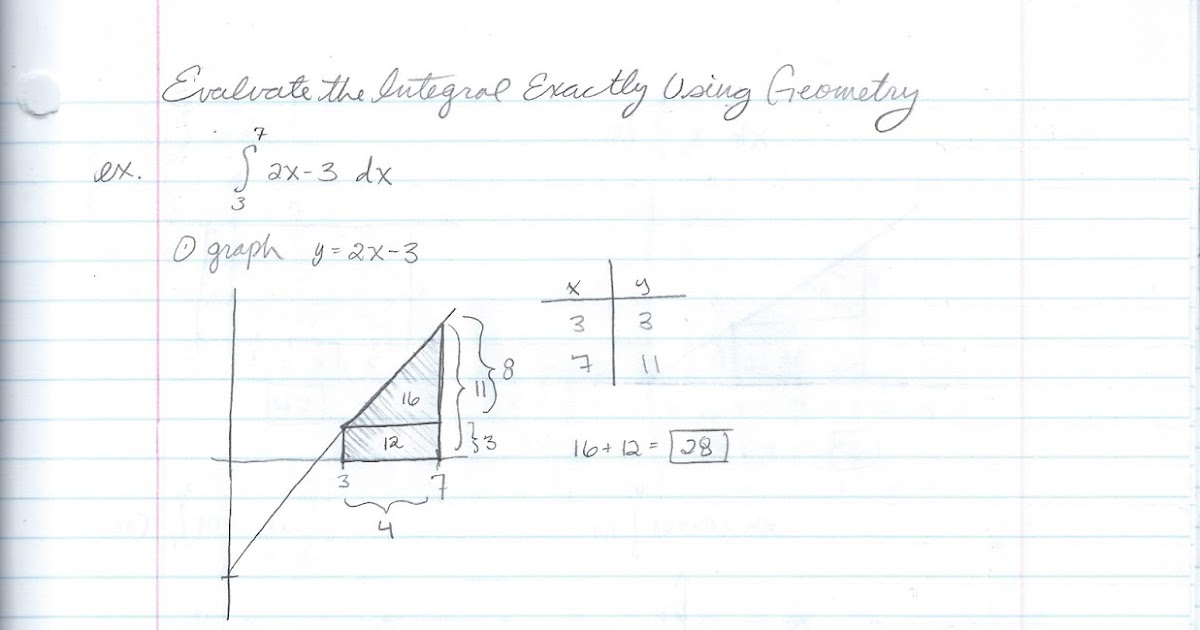 Evaluate the Integral Exactly Using Geometry
ex. ∫ 2x-3 dx
7
3
① graph y=2x-3
x y
3 3
7 11
16
12
11
8
3
3 7
4
16+12= 28